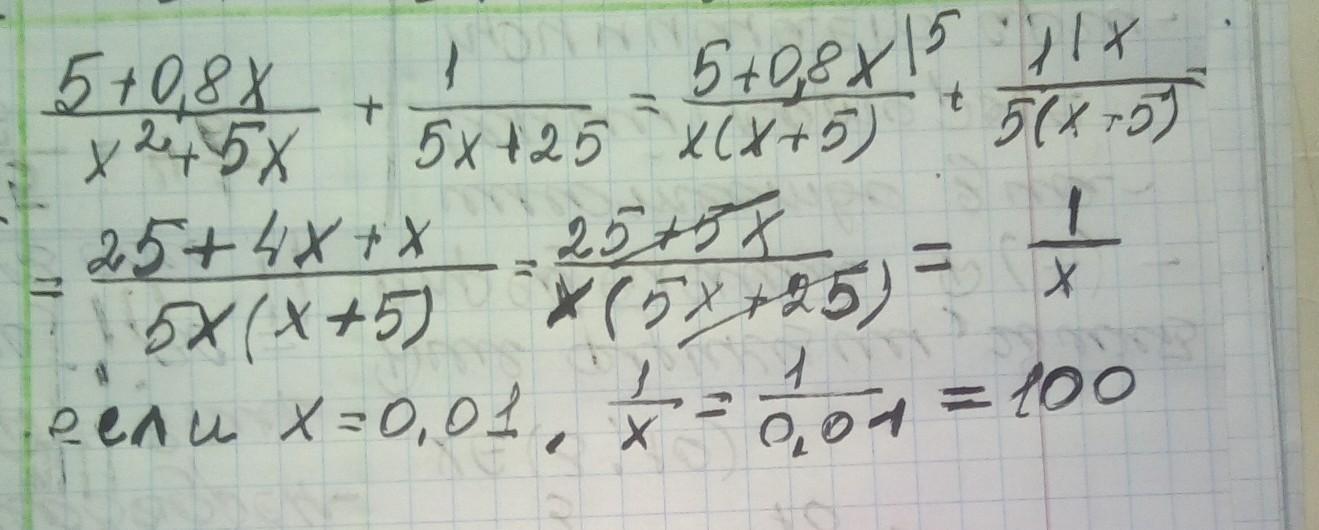 (5+0,8x)/(x²+5x) + 1/(5x+25) = (5+0,8x|5)/(x(x+5)) + (1|x)/(5(x+5)) =
= (25+4x+x)/(5x(x+5)) = (25+5x)/(x(5x+25)) = 1/x
если x=0,01, 1/x = 1/0,01 = 100